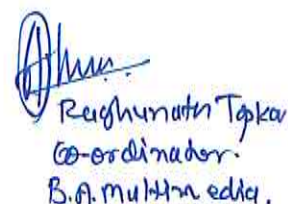 Raghunath Topka
Co-ordinator.
B.A. Multimedia.